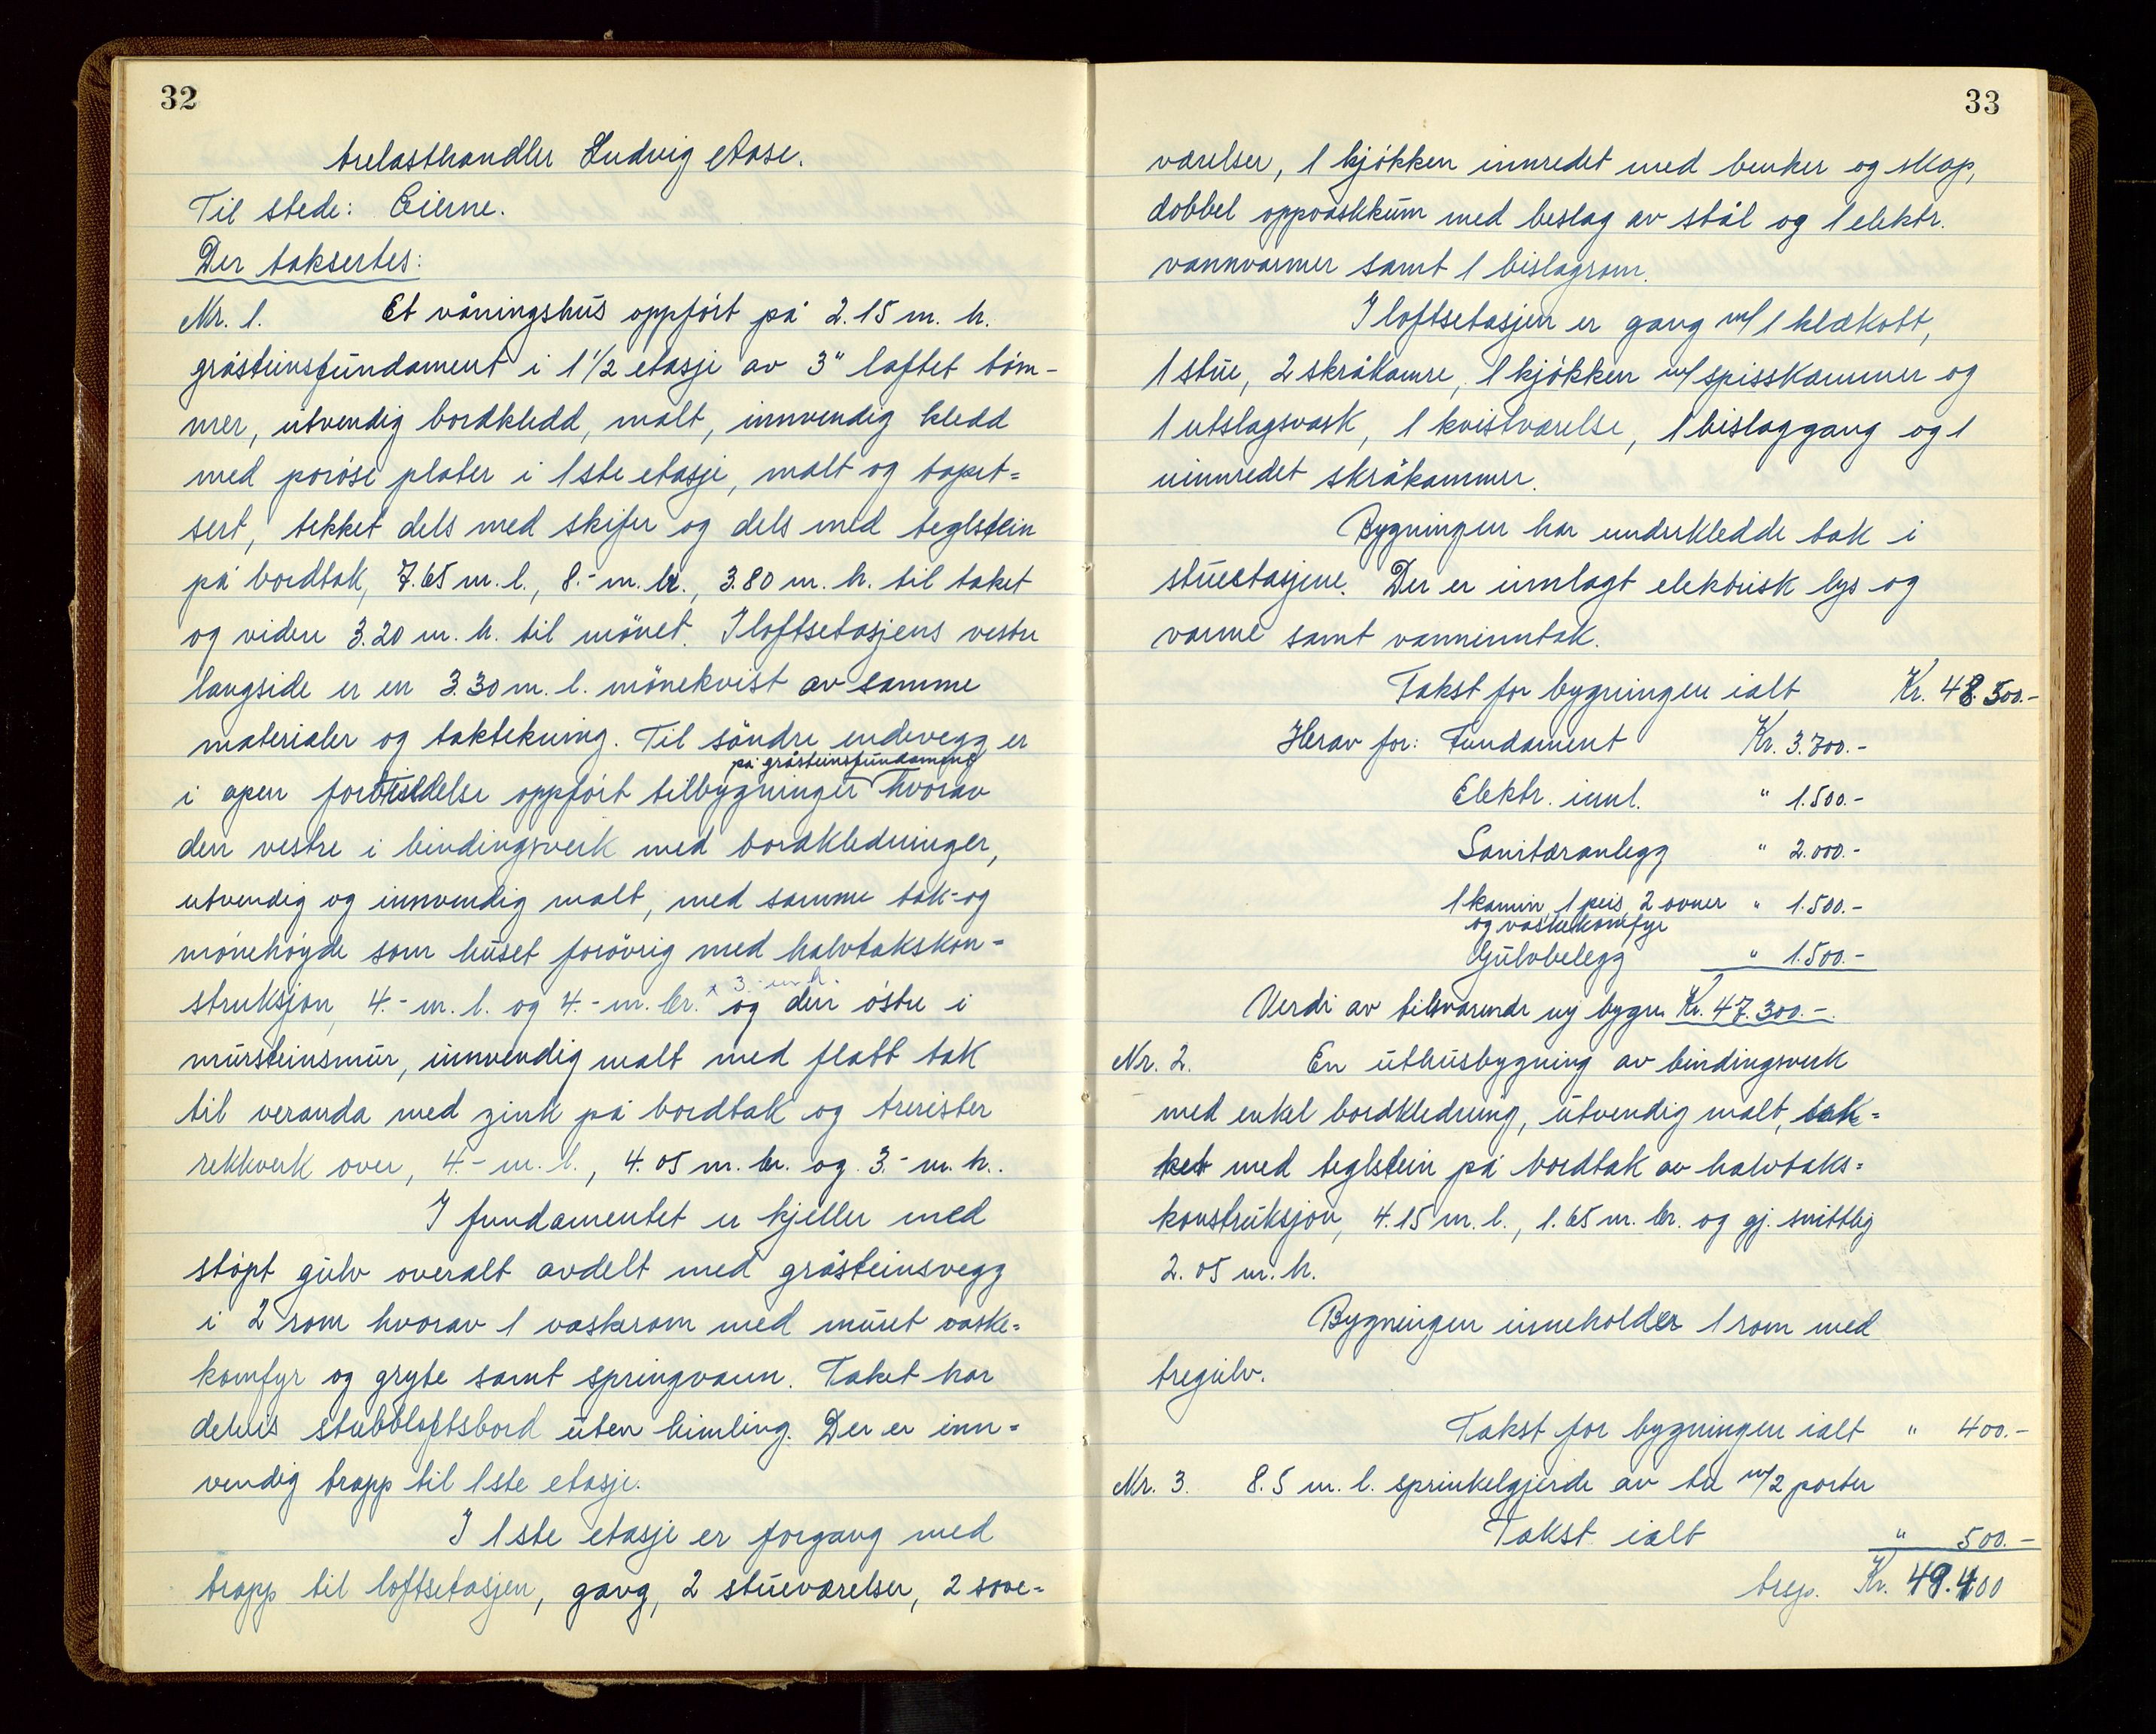 32
trelasthandler Ludvig Aase.
Til stede: Eierne.
Der taksertes:
Nr. 1. Et våningshus oppført på 2.15 m. h.
gråsteinsfundament i 1 1/2 etasje av 3" laftet töm-
mer, utvendig bordkledd, malt, innvendig kledd
med porøse plater i 1ste etasje, malt og tapet=
sert, tekket dels med skifer og dels med teglstein
på bordtak, 7.65 m. l., 8.- m. br., 3.80 m. h. til taket
og videre 3.20 m. h. til mönet. I loftsetasjens vestre
langside er en 3.30 m. l. mönekvist av samme
materialer og taktekning. Til söndre endevegg er
på gråsteinsfundament
i åpen forbindelse oppført tilbygninger hvorav
den vestre i bindingsverk med bordkledninger,
utvendig og innvendig malt, med samme tak- og
mønehøyde som huset forövrig med halvtakskon=
struksjon, 4.- m. l. og 4.- m. br. x 3.- m. h. og den østre i
mursteinsmur, innvendig malt med flatt tak
til veranda med zink på bordtak og trerister
rekkverk over, 4.- m. l., 4.05 m. br. og 3.- m. h..
I fundamentet er kjeller med
støpt gulv overalt avdelt med gråsteinsvegg
i 2 rom hvorav 1 vaskerom med muret vaske=
komfyr og gryte samt springvann. Taket har
delvis stubbloftsbord uten himling. Der er inn=
vendig trapp til 1ste etasje.
I 1ste etasje er forgang med
trapp til loftsetasjen, gang, 2 stueværelser, 2 sove=
33
værelser, 1 kjøkken innredet med benker og skap,
dobbel oppvaskkum med beslag av stål og 1 elektr.
vannvarmer samt 1 bislagrom.
I loftsetasjen er gang m/ 1 klækott,
1 stue, 2 skråkamre, 1 kjøkken m/ spisskammer og
1 utslagsvask, 1 kvistværelse, 1 bislaggang og 1
uinnredet skråkammer.
Bygningen har underkledde tak i
stuetasjene. Der er innlagt elektrisk lys og
varme samt vanninntak.
Takst for bygningen ialt Kr. 48.500.-
Herav for: Fundament Kr. 3.700.-
Elektr. innl. " 1.500.-
Sanitæranlegg " 2.000.-
1 kamin 1 peis 2 ovner " 1.500.-
og vaskekomfyr
Gulvbelegg " 1.500.-
Verdi av tilsvarende ny bygn. Kr. 47.300.-.
Nr. 2. En uthusbygning av bindingsverk
med enkel bordkledning, utvendig malt, tek=
ket med teglstein på bordtak av halvtaks=
konstruksjon, 4.15 m. l., 1.65 m. br. og gj. snittlig
2.05 m. h.
Bygningen inneholder 1 rom med
tregulv.
Takst for bygningen ialt " 400.-
Nr. 3. 8.5 m. l. sprinkelgjerde av tre m/ 2 porter
Takst ialt " 500.-
trsp. Kr. 49.400